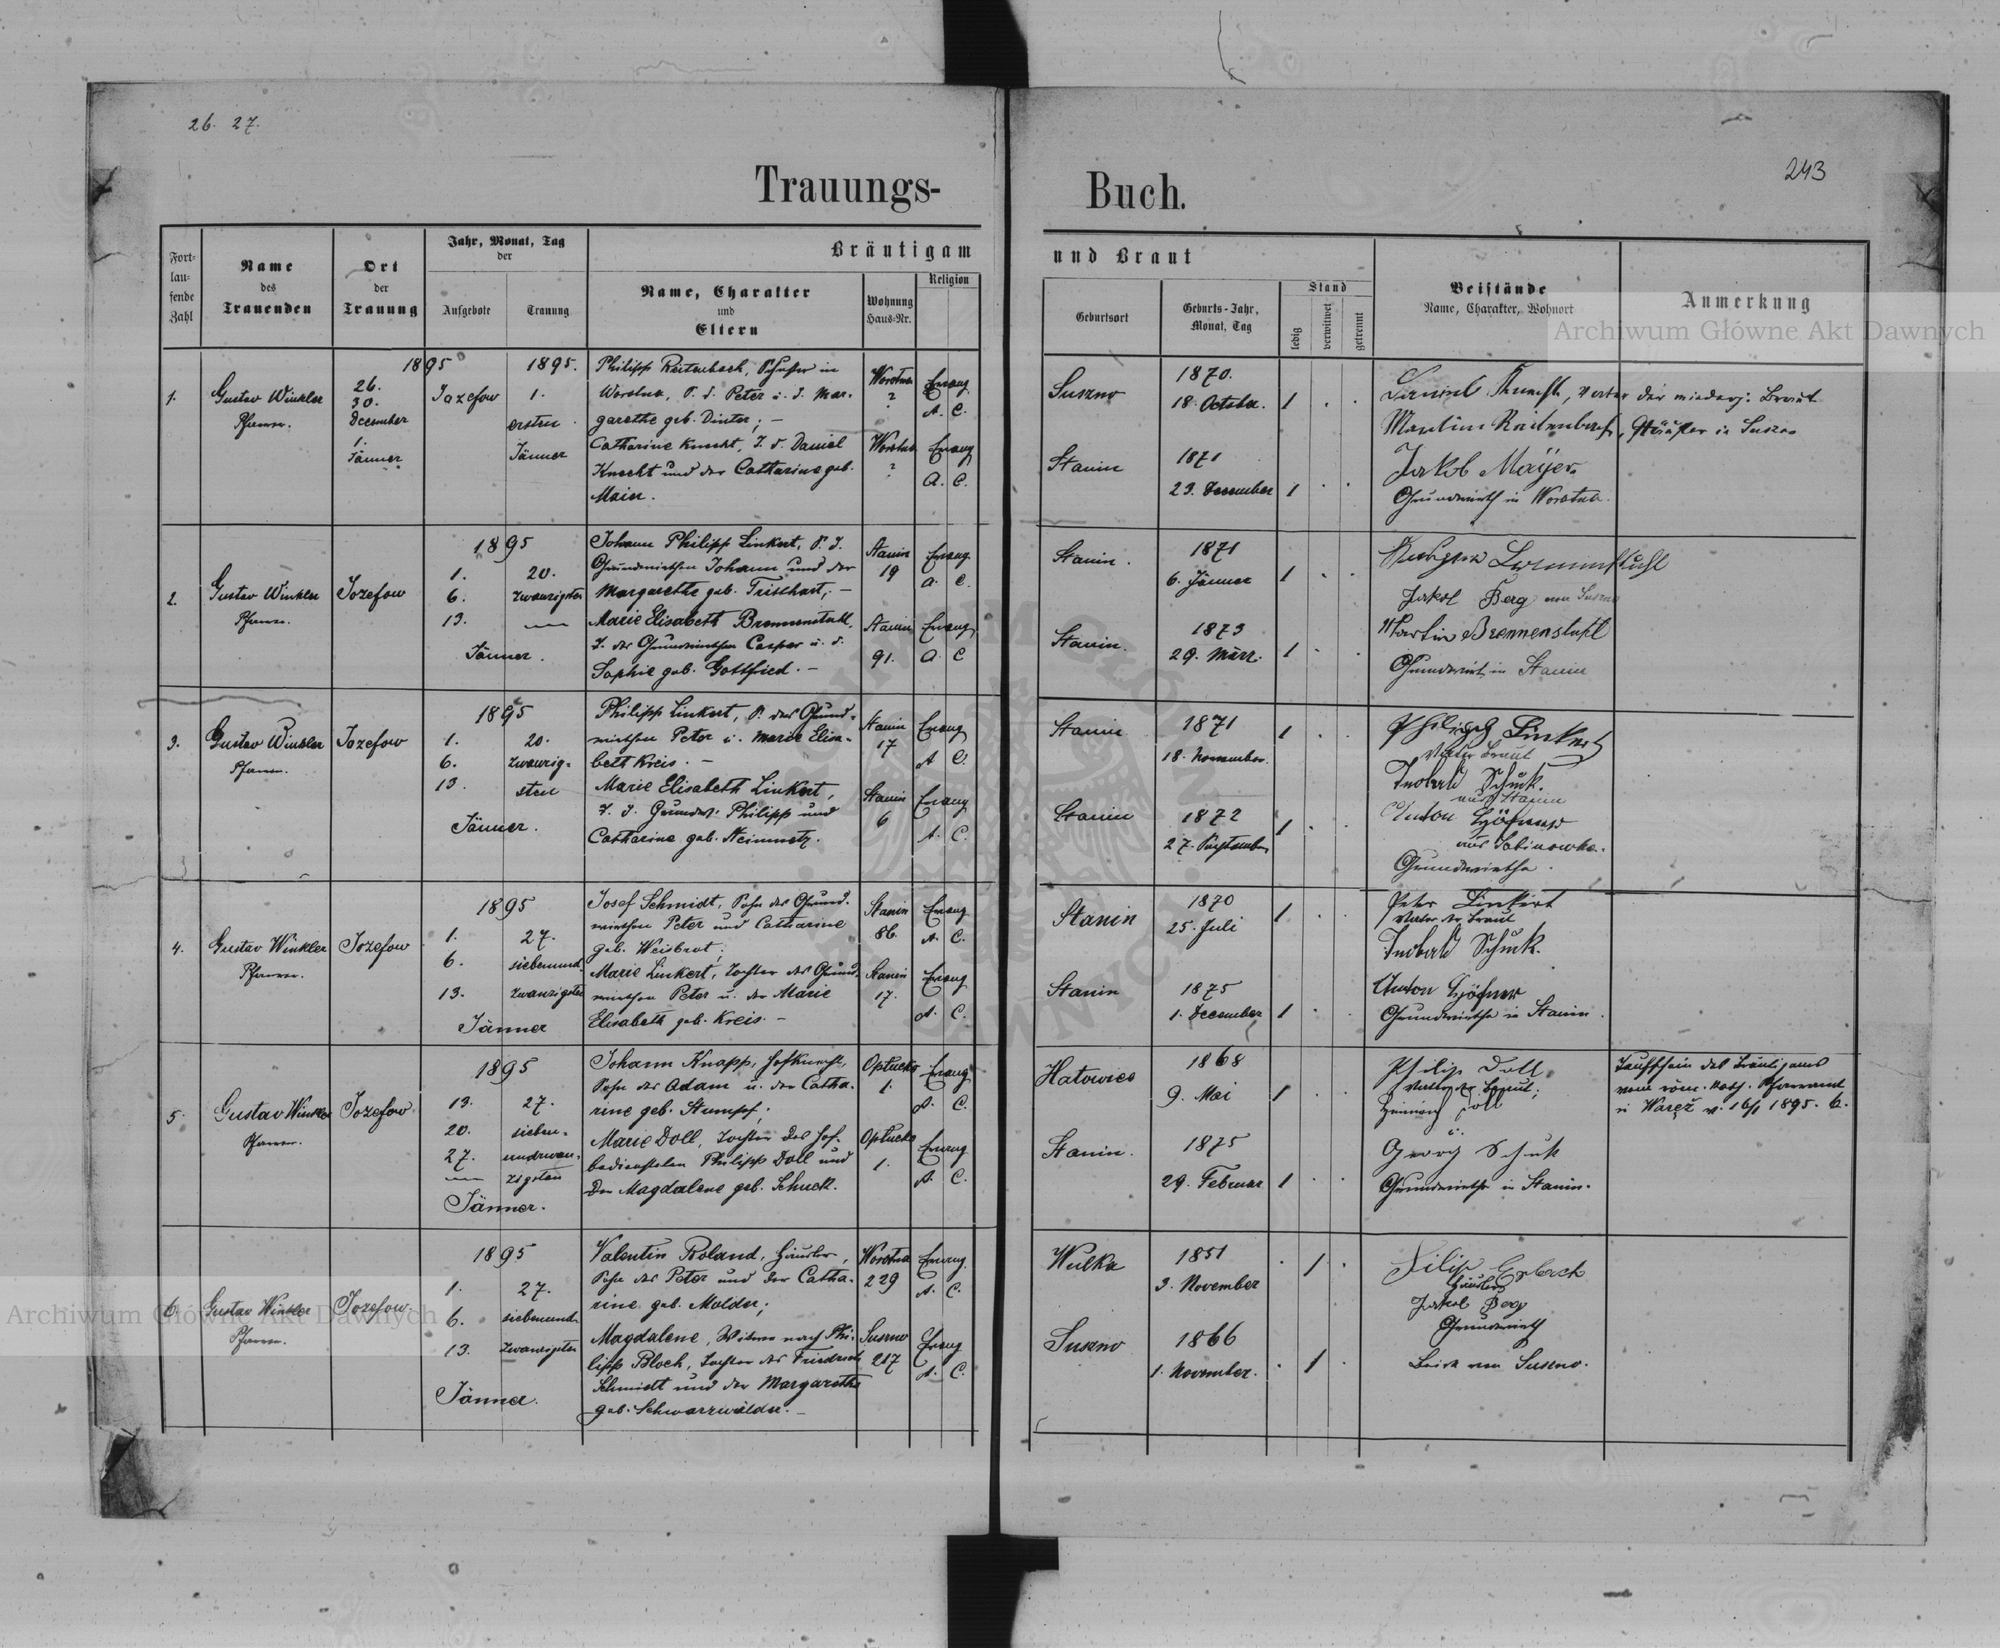 26. 27.
243
Trauungs-Buch.
Fort-
lau-
fende
Zahl
Name
des
Trauenden
Ort
der
Trauung
Jahr, Monat, Tag
der
Aufgebote
Trauung
Bräutigam und Braut
Name, Charakter
und
Eltern
Wohnung
Haus-Nr.
Religion
Geburtsort
Geburts-Jahr,
Monat, Tag
Stand
ledig
verwitwet
getrennt
Beistände
Name, Charakter, Wohnort
Anmerkung
Archiwum Główne Akt Dawnych
1.
Gustav Winkler
Pfarrer.
26.
30.
December
1.
Jänner
1895
Jozefow
1895.
1.
ersten
Jänner
Philipp Reitenbach, in
Worotna, S. d. Peter u. d. Mar-
garethe geb. Dinter; —
Catharine Knecht, T. d. Daniel
Knecht und der Catharine geb.
Maier.
Worotna
?
Evang
A. C.
Worotna
?
Evang
A. C.
Suszno
1870.
18. October.
1 . .
Stanin
1871
23. December
1 . .
Daniel Knecht, Vater der Braut
Martin Reitenbach, Häusler in Suszno
Jakob Mayer
Grundwirth in Worotna.
2.
Gustav Winkler
Pfarrer.
Jozefow
1895
1.
6.
13.
20.
zwanzigsten
Jänner.
Johann Philipp Linkert, S. d.
Grundwirthen Johann und der
Margarethe geb. Tristhart; —
Marie Elisabeth Brennenstuhl,
T. des Grundwirthen Casper u. d.
Sophie geb. Gottfried. —
Stanin
19
Evang.
A. C.
Stanin
91.
Evang
A. C
Stanin.
1871
6. Jänner
1 . .
Stanin.
1873
29. März.
1 . .
Brennenstuhl
Jakob Berg von Suszno
Martin Brennenstuhl
Grundwirt in Stanin
3.
Gustav Winkler
Pfarrer.
Jozefow
1895
1.
6.
13.
20.
zwanzig-
sten
Jänner.
Philipp Linkert, S. des Grund-
wirthen Peter u. Marie Elisa-
beth Kreis. —
Marie Elisabeth Linkert,
T. d. Grundw. Philipp und
Catharine geb. Steinmetz.
Stanin
17
Evang
A C.
Stanin
6
Evang
A. C.
Stanin
1871
18. November.
1 . .
Stanin
1872
27. September
1 . .
Philipp Linkert
Vater Braut
Schuk.
aus Stanin
Anton Höfner
aus Sabinowka.
Grundwirthe.
4.
Gustav Winkler
Pfarrer.
Jozefow
1895
1.
6.
13.
27.
siebenund-
zwanzigsten
Jänner
Josef Schmidt, Sohn des Grund-
wirthen Peter und Catharine
geb. Weisbrot;
Marie Linkert, Tochter des Grund-
wirthen Peter u. der Marie
Elisabeth geb. Kreis. —
Stanin
86.
Evang
A. C.
Stanin
17.
Evang
A. C.
Stanin
1870
25. Juli
1 . .
Stanin
1875
1. December
1 . .
Peter Linkert
Vater der Braut
Schuk.
Anton Höfner
Grundwirthe in Stanin.
5.
Gustav Winkler
Pfarrer.
Jozefow
1895
13.
20.
27.
27.
sieben-
undzwan-
zigsten
Jänner.
Johann Knapp, Hofknecht,
Sohn des Adam u. der Catha-
rine geb. Stumpf;
Marie Doll, Tochter des Hof-
bediensteten Philipp Doll und
der Magdalene geb. Schuck.
Optucko
1.
Evang
A. C.
Optucko
1.
Evang
A. C.
Hatowice
1868
9. Mai
1 . .
Stanin.
1875
29. Februar
1 . .
Philip Doll
Vater der Braut;
Heinrich Doll
u.
Georg Schuk
Grundwirthe in Stanin.
Taufschein des Bräutigams
vom röm. kath. Pfarramt
in Waręż v. 16/1 1895. 6.
6.
Gustav Winkler
Pfarrer.
Jozefow
1895
1.
6.
13.
27.
siebenund-
zwanzigsten
Jänner.
Valentin Roland, Häusler,
Sohn des Peter und der Catha-
rine geb. Malder;
Magdalene, Witwe nach Phi-
lipp Bloch, Tochter des Friedrich
Schmidt und der Margarethe
geb. Schwarzwälder. —
Worotna
229
Evang.
A. C.
Suszno
217
Evang
A. C.
Wulka
1851
3. November
. 1 .
Suszno
1866
1. November.
. 1 .
Filip
Häusler
Jakob Berg
Grundwirth
Beide von Suszno.
Archiwum Główne Akt Dawnych